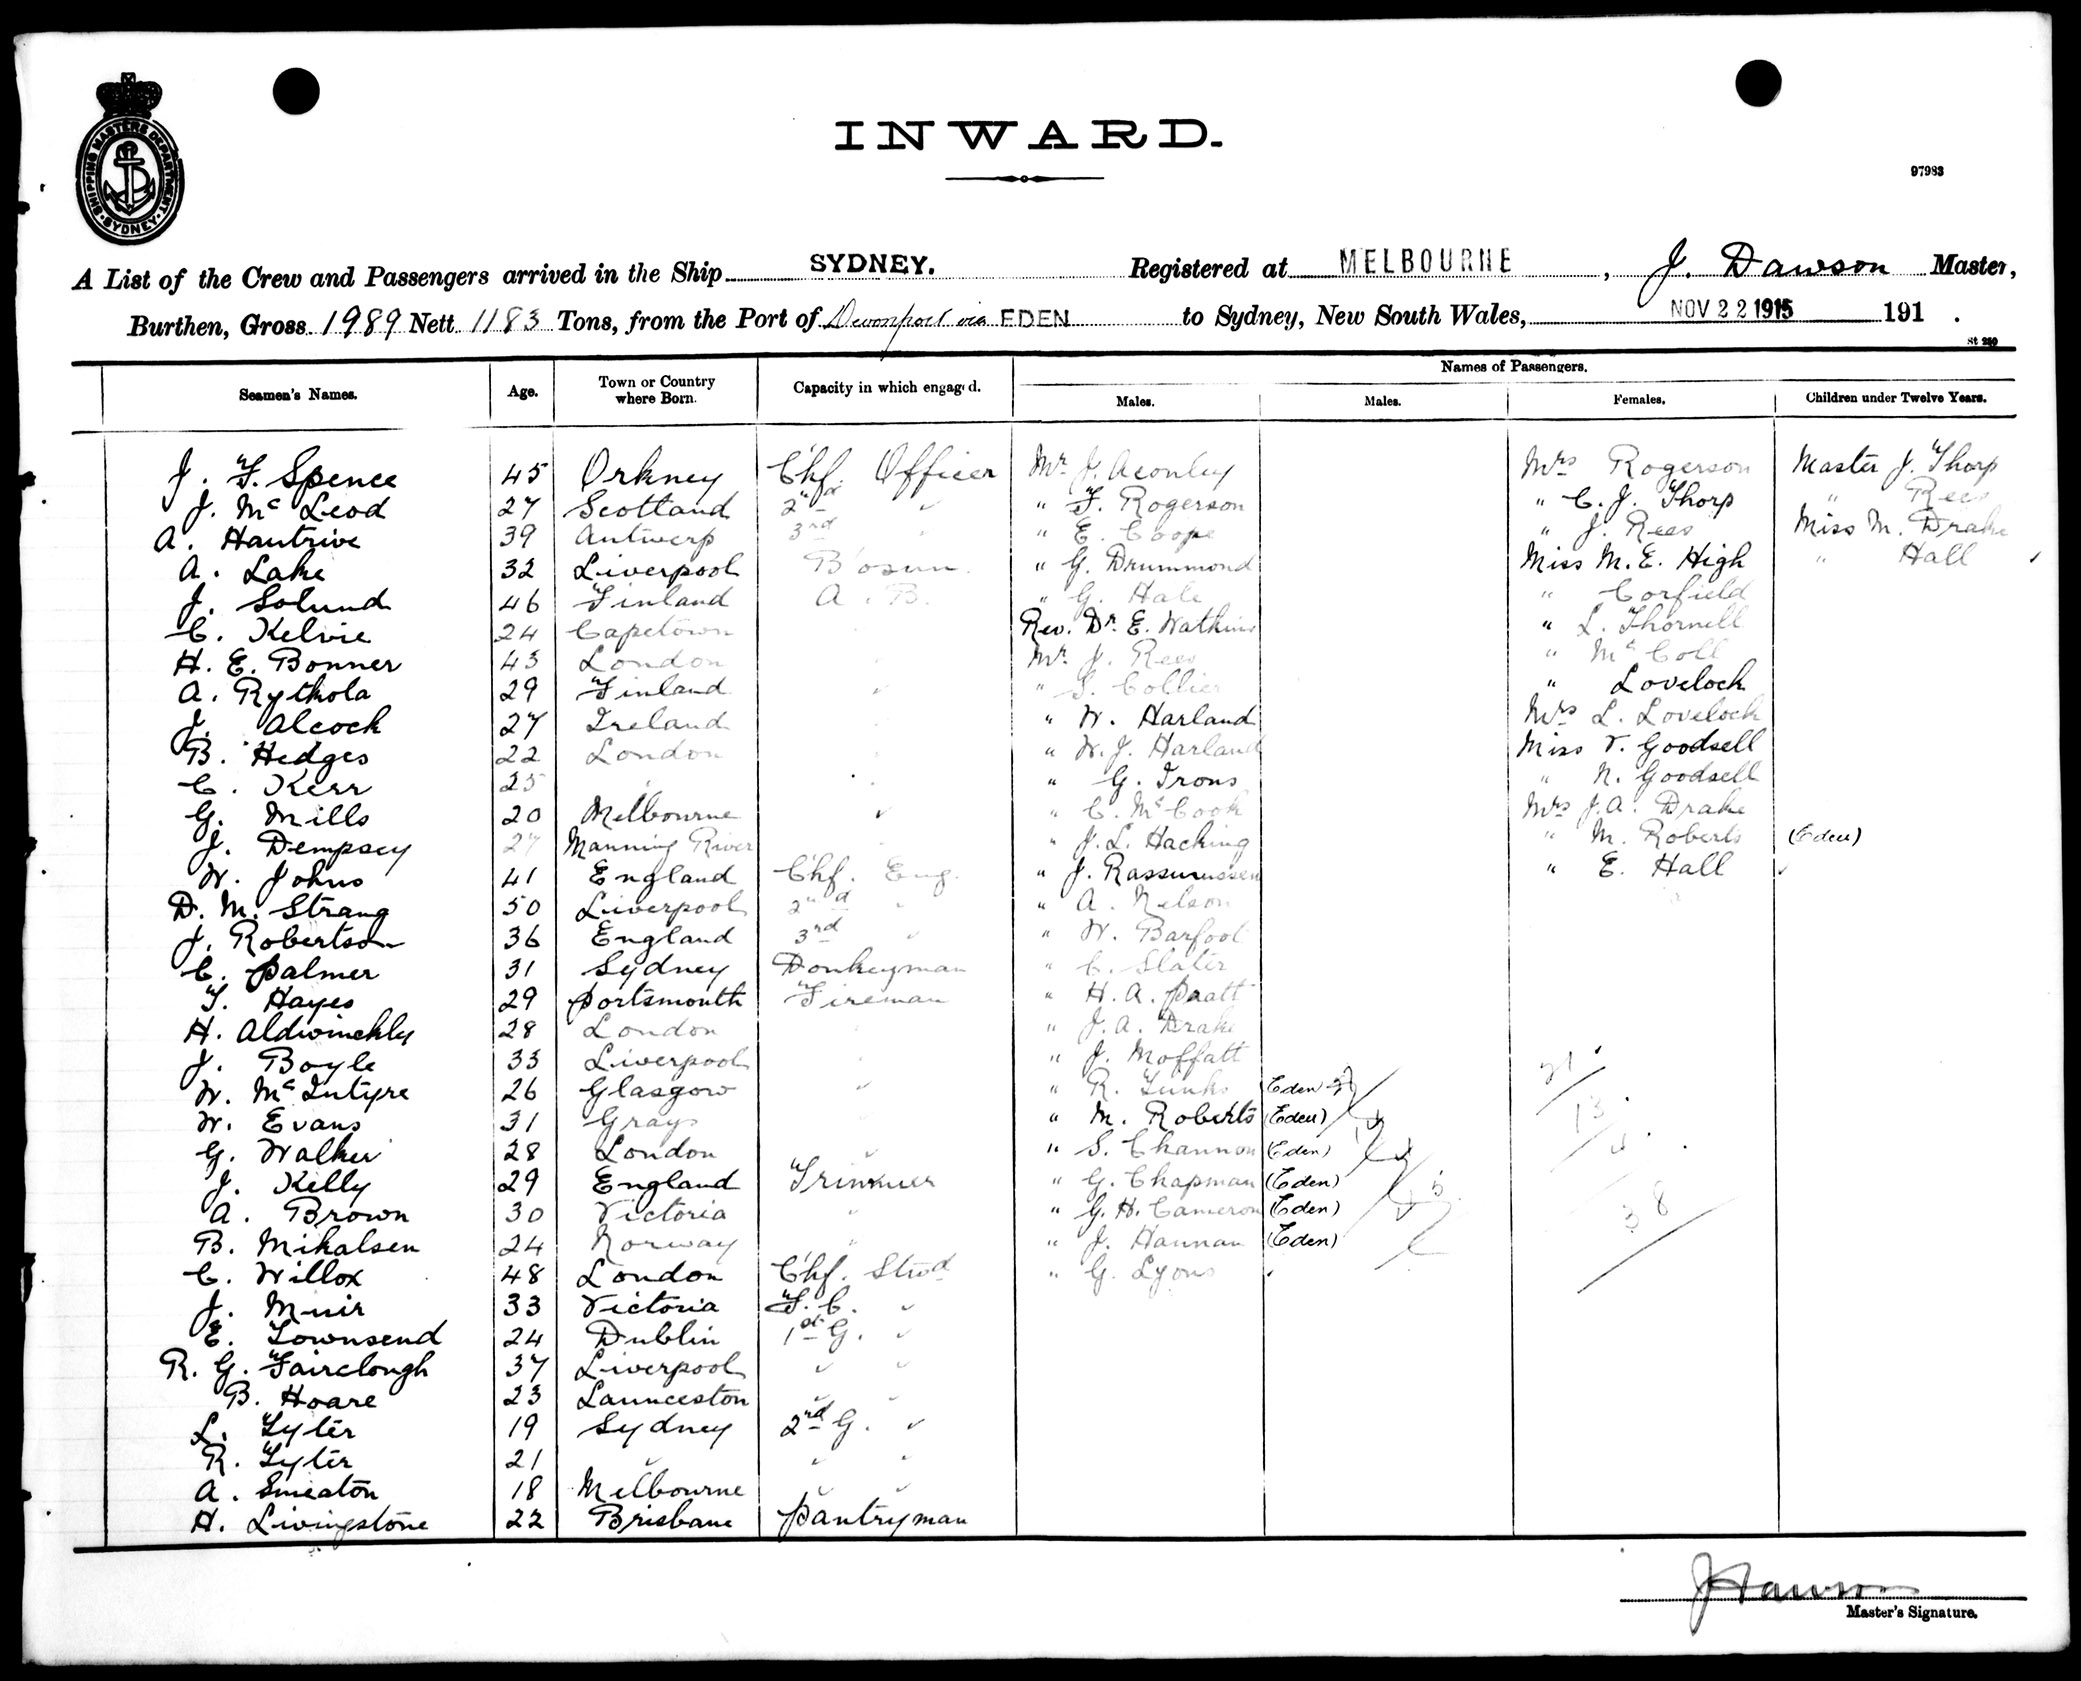 INWARD.
SHIPPING MASTERS DEPARTMENT. SYDNEY.
97983
A List of the Crew and Passengers arrived in the Ship SYDNEY. Registered at MELBOURNE, J. Dawson Master,
Burthen, Gross 1989 Nett 1183 Tons, from the Port of Devonport via EDEN to Sydney, New South Wales, NOV 22 1915 191 .
St 250
Names of Passengers.
Seamen's Names. Age. Town or Country where Born. Capacity in which engaged. Males. Males. Females. Children under Twelve Years.
J. F. Spence 45 Orkney Chf. Officer Mr. J. Aconley Mrs Rogerson Master J. Thorp
J. Mc Leod 27 Scotland 2nd " " F. Rogerson " C. J. Thorp " Rees
A. Hautrive 39 Antwerp 3rd " " E. Coope " J. Rees Miss M. Drake
A. Lake 32 Liverpool B'osun " G. Drummond Miss M. E. High " Hall
J. Solund 46 Finland A. B. " G. Hale " Corfield
C. Kelvie 24 Capetown " Rev. Dr. E. Watkins " L. Thornell
H. E. Bonner 43 London " Mr. J. Rees " Mc Coll
A. Rythola 29 Finland " " S. Collier " Lovelock
J. Alcock 27 Ireland " " W. Harland Mrs L. Lovelock
B. Hedges 22 London " " W. J. Harland Miss V. Goodsell
C. Kerr 25 " " " G. Irons " N. Goodsell
G. Mills 20 Melbourne " " C. Mc Cook Mrs J. A. Drake
J. Dempsey 27 Manning River " " J. L. Hacking " M. Roberts (Eden)
W. Johns 41 England Chf. Eng. " J. Rassmussen " E. Hall
D. M. Strang 50 Liverpool 2nd " " A. Nelson
J. Robertson 36 England 3rd " " W. Barfoot
C. Palmer 31 Sydney Donkeyman " C. Slater
T. Hayes 29 Portsmouth Fireman " H. A. Pratt
H. Aldwinckly 28 London " " J. A. Drake
J. Boyle 33 Liverpool " " J. Moffatt
W. Mc Intyre 26 Glasgow " " R. (Eden) 21
W. Evans 31 Grays " " M. Roberts (Eden) 13
G. Walker 28 London " " S. Channon (Eden) 4
J. Kelly 29 England Trimmer " G. Chapman (Eden)
A. Brown 30 Victoria " " G. H. Cameron (Eden) 38
B. Mikalsen 24 Norway " " J. Hannan (Eden)
C. Willox 48 London Chf. Stwd " G. Lyons "
J. Muir 33 Victoria F. C. "
E. Townsend 24 Dublin 1st G. "
R. G. Fairclough 37 Liverpool " "
B. Hoare 23 Launceston " "
L. Fyler 19 Sydney 2nd G. "
R. Fyler 21 " " "
A. Smeaton 18 Melbourne " "
H. Livingstone 22 Brisbane Pantryman
J Dawson
Master's Signature.